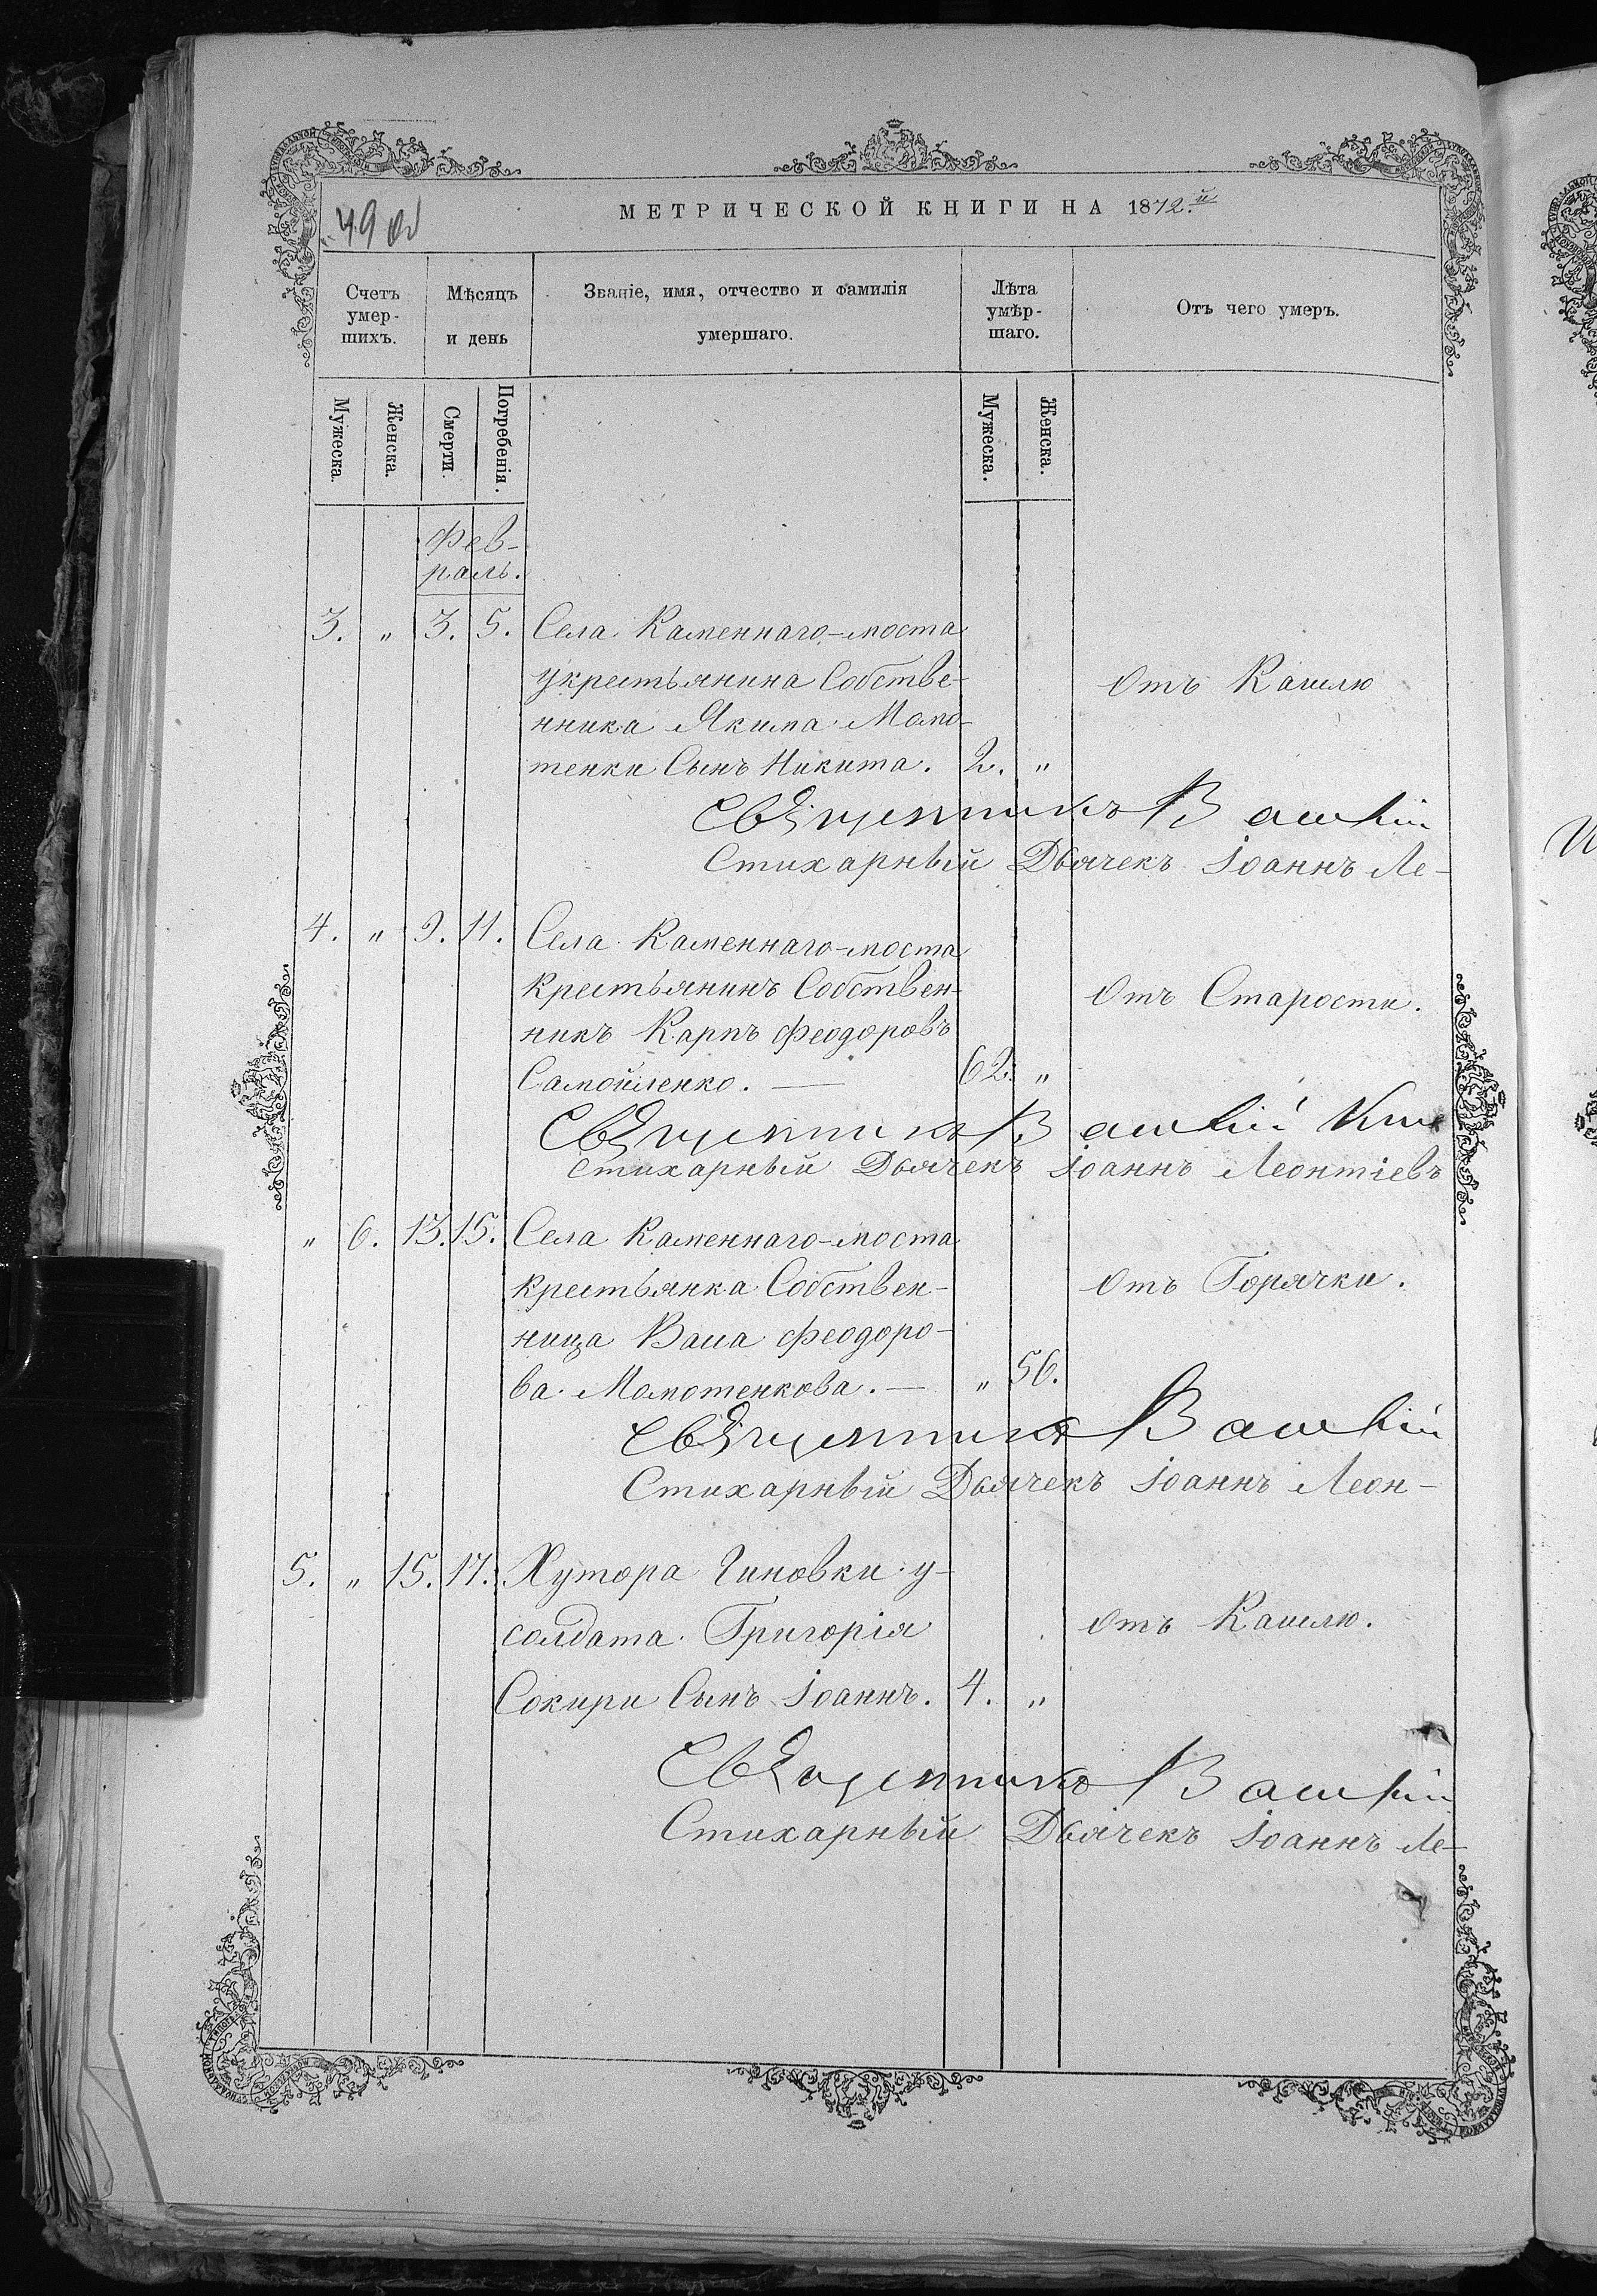 49 об
МЕТРИЧЕСКОЙ КНИГИ НА 1872.й
Счетъ умер-шихъ.
Мѣсяцъ и день
Званіе, имя, отчество и фамилія умершаго.
Лѣта умѣр-шаго.
Отъ чего умеръ.
Мужеска.
Женска.
Смерти.
Погребенія.
Мужеска.
Женска.
Фев-
раль.
3. " 3. 5. Села Каменнаго-моста
укрестьянина Собстве-
нника Якима Момо-
тенки Сынъ Никита. 2. "
Отъ Кашлю
Священникъ
Стихарный Дьячекъ Іоаннъ Ле-
4. " 9. 11. Села Каменнаго-моста
Крестьянинъ Собствен-
никъ Карпъ Феодоровъ
Самойленко. — 62. "
Отъ Старости.
Священникъ
Стихарный Дьячекъ Іоаннъ Леонтіевъ
" 6. 13. 15. Села Каменнаго-моста
Крестьянка Собствен-
ница Васса Феодоро-
ва Момотенкова. — " 56.
Отъ Горячки.
Священникъ
Стихарный Дьячекъ Іоаннъ Леон-
5. " 15. 17. Хутора у
солдата Григорія
Сокири Сынъ Іоаннъ. 4. "
Отъ Кашлю.
Священникъ
Стихарный Дьячекъ Іоаннъ Ле-